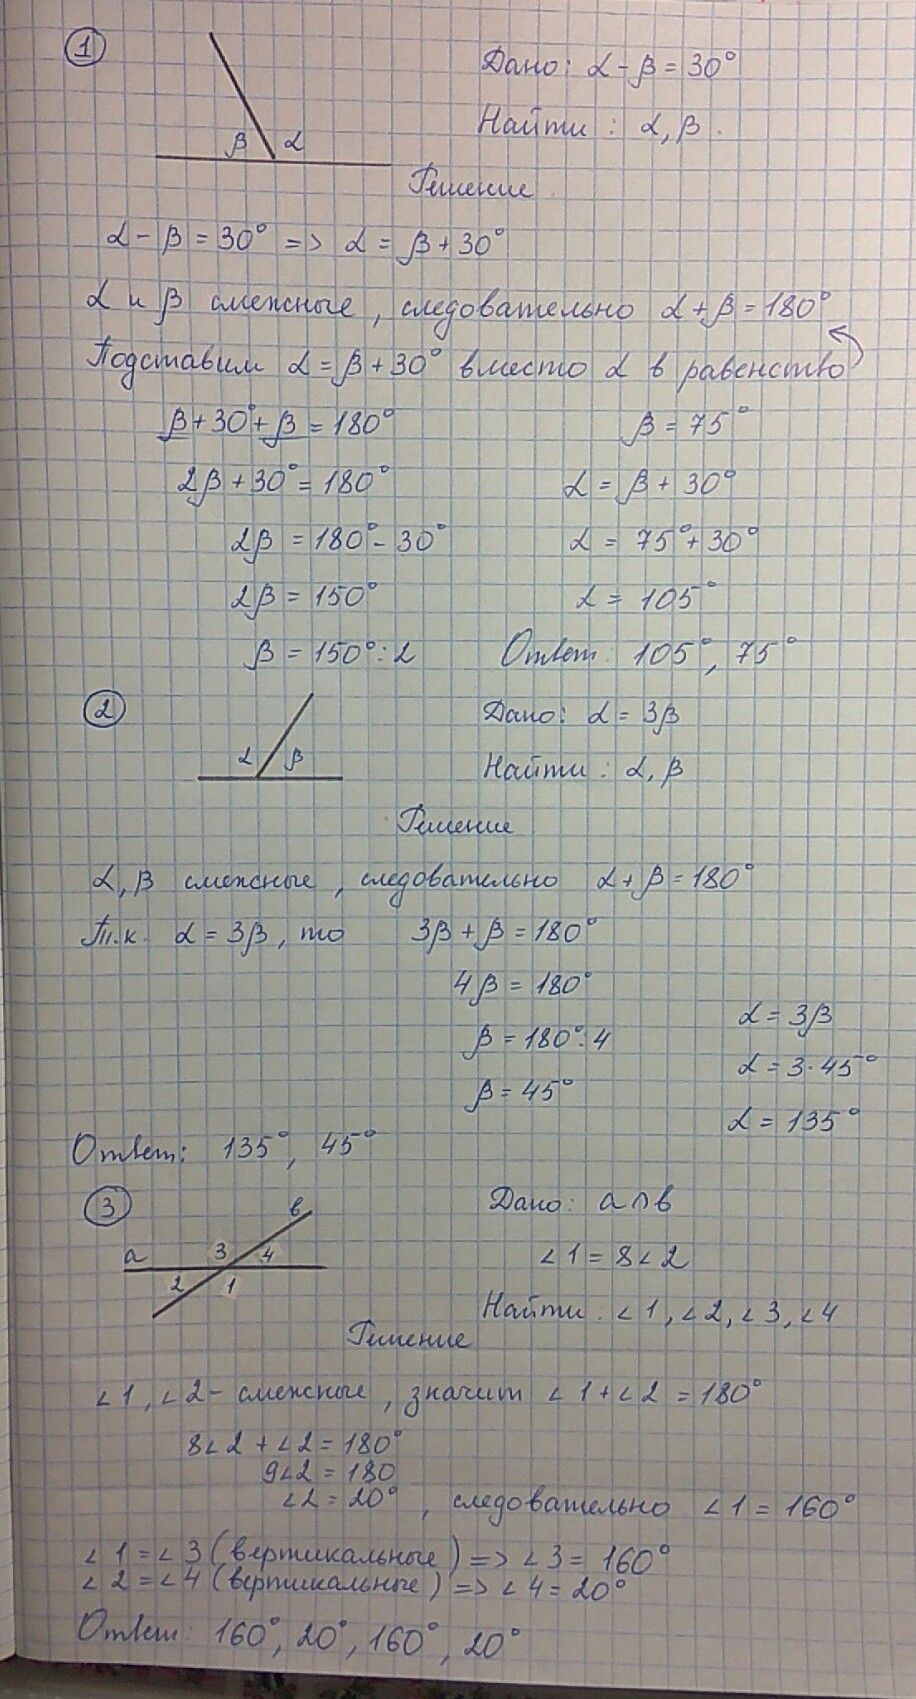 1
Дано: α - β = 30°
Найти: α, β.
β α
Решение
α - β = 30° => α = β + 30°
α и β смежные, следовательно α + β = 180°
Подставим α = β + 30° вместо α в равенство
β + 30° + β = 180°
2β + 30° = 180°
2β = 180° - 30°
2β = 150°
β = 150° : 2
β = 75°
α = β + 30°
α = 75° + 30°
α = 105°
Ответ: 105°, 75°
2
α β
Дано: α = 3β
Найти: α, β
Решение
α, β смежные, следовательно α + β = 180°
Т.к. α = 3β, то 3β + β = 180°
4β = 180°
β = 180° : 4
β = 45°
α = 3β
α = 3·45°
α = 135°
Ответ: 135°, 45°
3
в
а 3 4
2 1
Дано: а ∩ в
∠1 = 8∠2
Найти: ∠1, ∠2, ∠3, ∠4
Решение
∠1, ∠2 - смежные, значит ∠1 + ∠2 = 180°
8∠2 + ∠2 = 180°
9∠2 = 180
∠2 = 20°, следовательно ∠1 = 160°
∠1 = ∠3 (вертикальные) => ∠3 = 160°
∠2 = ∠4 (вертикальные) => ∠4 = 20°
Ответ: 160°, 20°, 160°, 20°